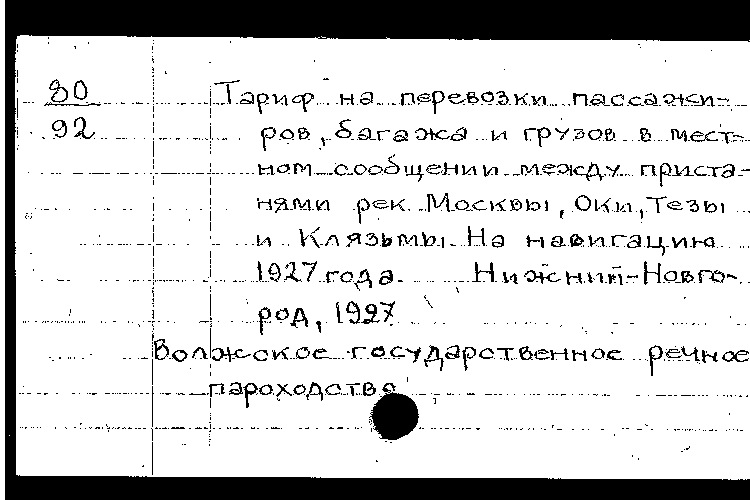 80 Тариф на перевозки пассажи-
92 ров, багажа и грузов в мест-
ном сообщении между приста-
нями рек Москвы, Оки, Тезы
и Клязьмы. На навигацию
1927 года. Нижний-Новго-
род, 1927
Волжское государственное речное
пароходство